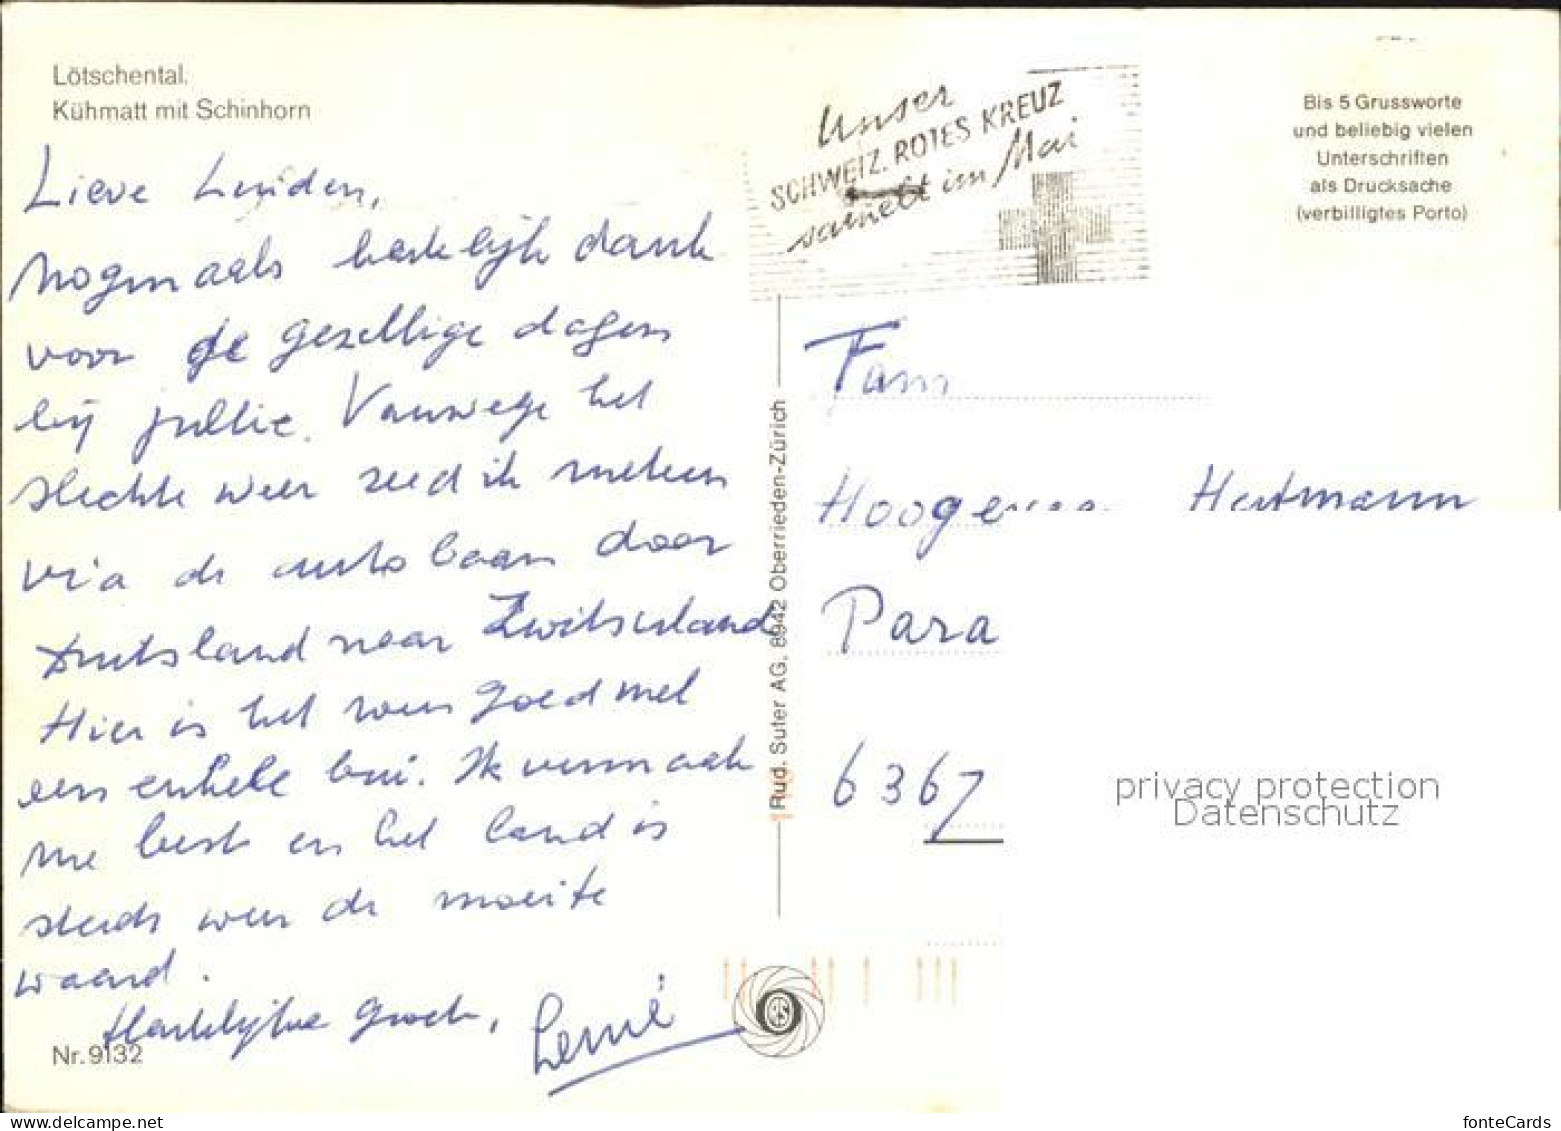 Lötschental.
Kühmatt mit Schinhorn
Lieve Luiden,
Nogmaals hartelijk dank
voor de gezellige dagen
bij jullie. Vanwege het
slechte weer reed ik meteen
via de autobaan door
Duitsland naar Zwitserland
Hier is het weer goed met
een enkele bui. Ik vermaak
me best en het land is
steeds weer de moeite
waard.
Hartelijke groet,
Nr. 9132
Unser
SCHWEIZ. ROTES KREUZ
sammelt im Mai
Bis 5 Grussworte
und beliebig vielen
Unterschriften
als Drucksache
(verbilligtes Porto)
Rud. Suter AG, 8942 Oberrieden-Zürich
Fam
Hartmann
Para
6367
privacy protection
Datenschutz
fonteCards